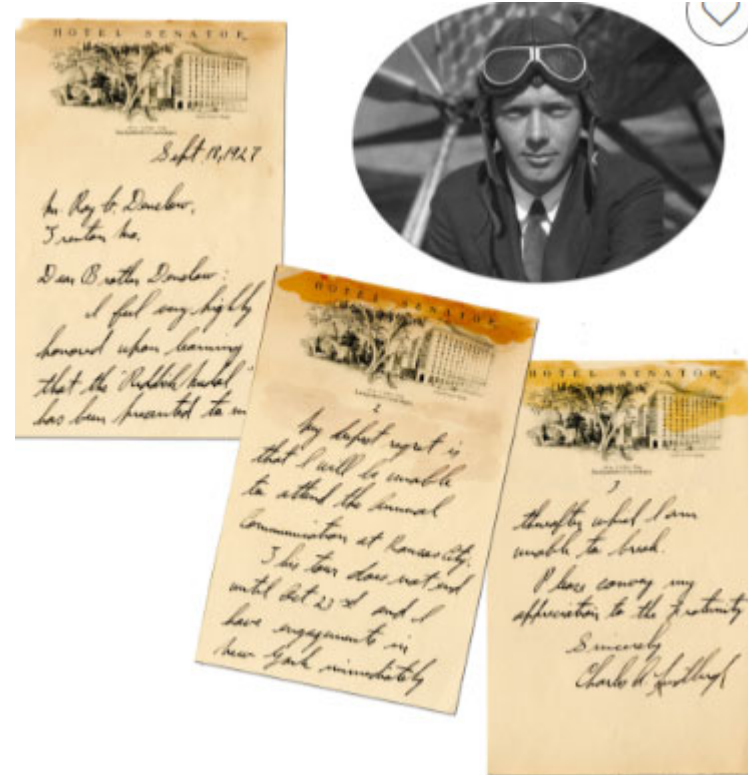 HOTEL SENATOR
Sept. 18, 1927
Mr. Ray V. Denslow,
Trenton Mo.
Dear Brother Denslow:
I feel very highly
honored upon learning
that the
has been presented to me
HOTEL SENATOR
2
My deepest regret is
that I will be unable
to attend the annual
Communication at Kansas City.
This tour does not end
until Oct 23rd and I
have engagements in
New York immediately
HOTEL SENATOR
3
thereafter which I am
unable to break.
Please convey my
appreciation to the fraternity
Sincerely
Charles A. Lindbergh